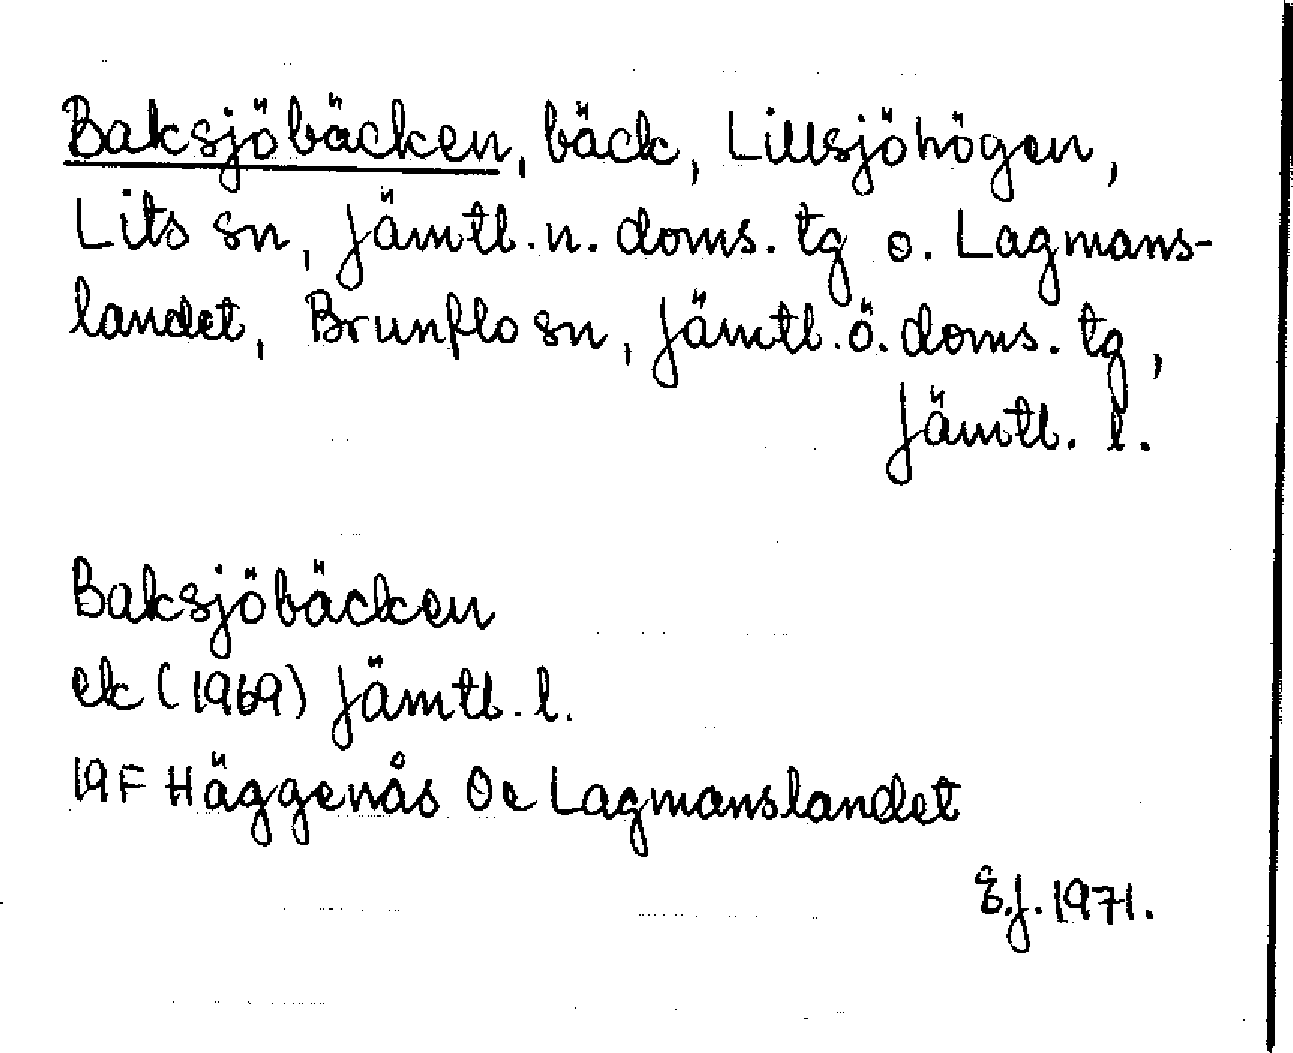 Baksjöbäcken, bäck, Lillsjöhögen,
Lits sn, Jämtl. n. doms. tg o. Lagmans-
landet, Brunflo sn, Jämtl. ö. doms. tg,
Jämtl. l.
Baksjöbäcken
ek (1969) Jämtl. l.
19F Häggenås Oe Lagmanslandet
E.J. 1971.